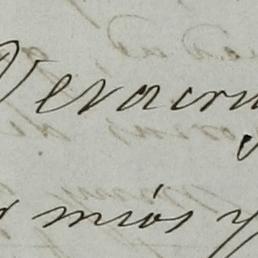 Veracru
r mios y